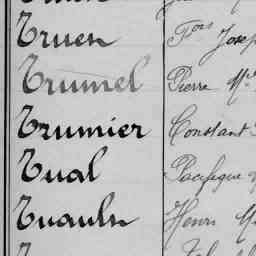 Truen Fois Josep
Trumel Pierre Me
Trumier Constant
Tual Pacifique
Tuauln Henri M